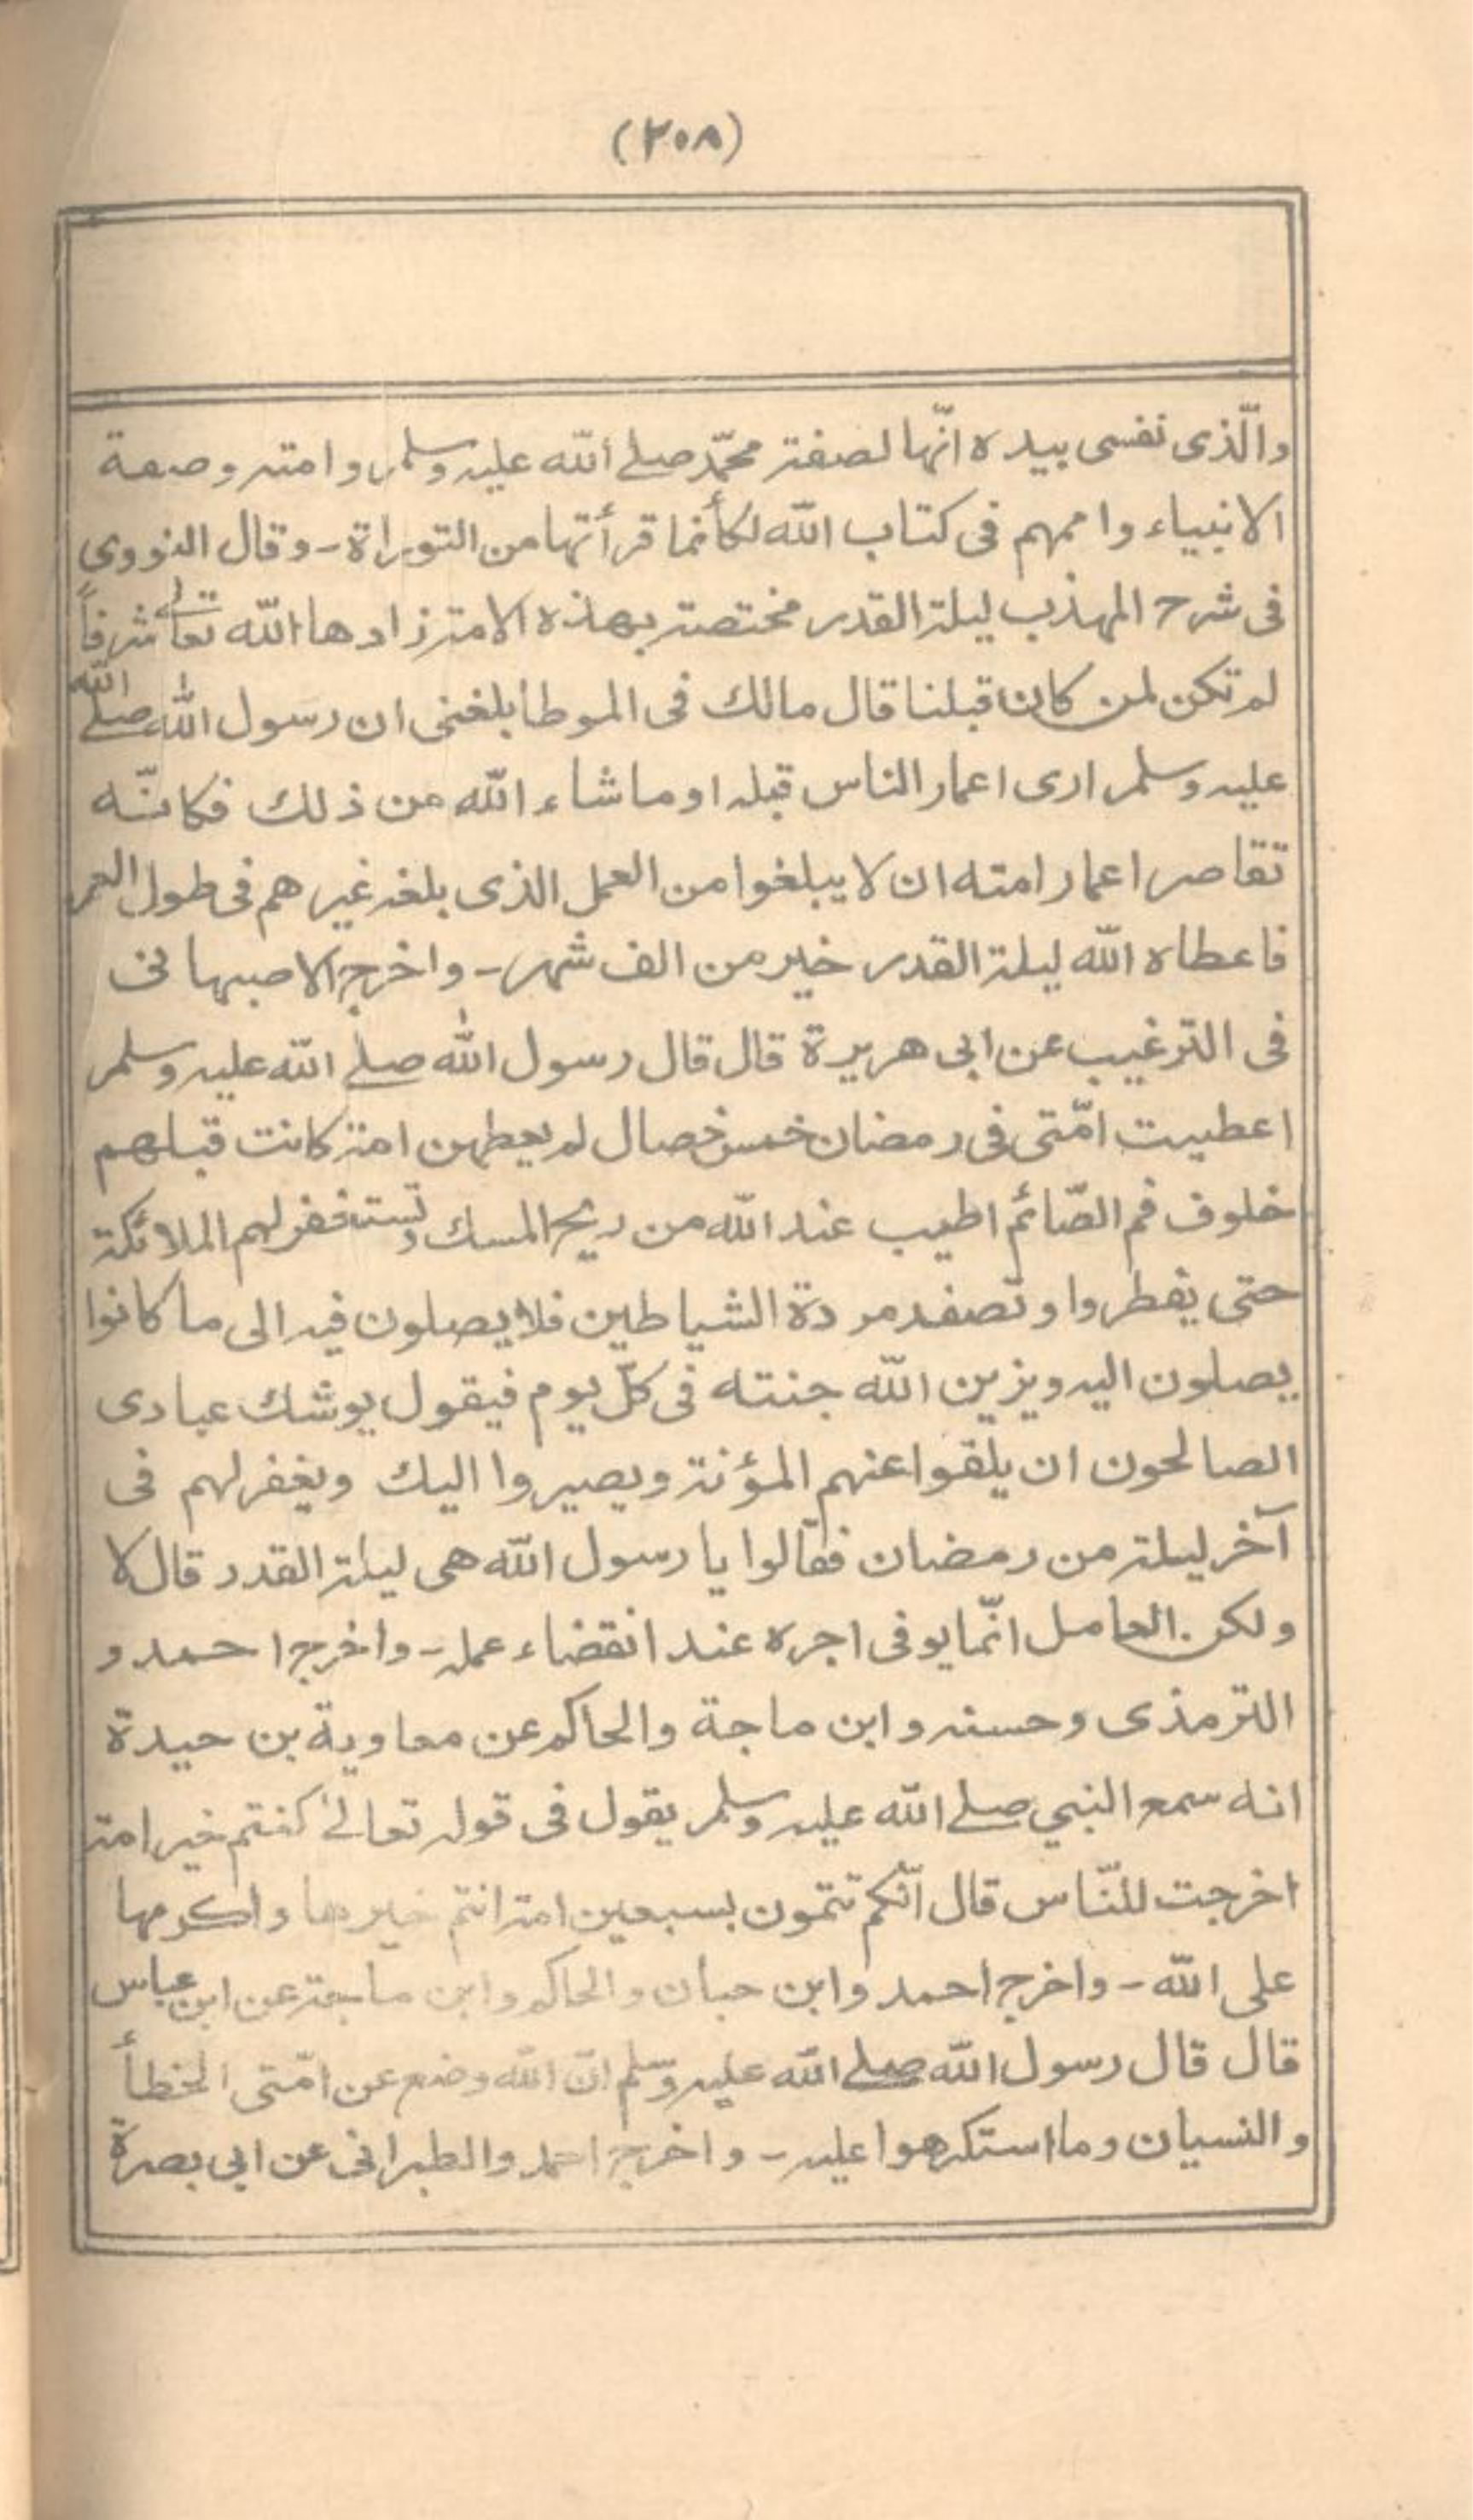 (٢٠٨)
والّذى نفسى بيده انّها لصفة محمّد صلے اللّه عليه وسلم وامته وصفة
الانبياء واممهم فى كتاب اللّه لكأنما قرأتها من التوراة - وقال النووى
فى شرح المهذب ليلة القدر مختصة بهذه الامة زادها اللّه تعالٰے شرفاً
لم تكن لمن كان قبلنا قال مالك فى الموطا بلغنى ان رسول اللّٰه صلے اللّه
عليه وسلم ارى اعمار الناس قبله او ماشاء اللّه من ذلك فكانّه
تقاصر اعمار امته ان لا يبلغوا من العمل الذى بلغه غيرهم فى طول العمر
فاعطاه اللّه ليلة القدر خير من الف شهر - واخرج الاصبهانى
فى الترغيب عن ابى هريرة قال قال رسول اللّٰه صلے اللّه عليه وسلم
اعطيت امّتى فى رمضان خمس خصال لم يعطهن امة كانت قبلهم
خلوف فم الصّائم اطيب عند اللّه من ريح المسك وتستغفر لهم الملائكة
حتى يفطروا وتصفد مردة الشياطين فلا يصلون فيه الى ما كانوا
يصلون اليه ويزين اللّه جنته فى كلّ يوم فيقول يوشك عبادى
الصالحون ان يلقوا عنهم المؤنة ويصيروا اليك ويغفر لهم فى
آخر ليلة من رمضان فقالوا يا رسول اللّه هى ليلة القدر قال لا
ولكن العامل انّما يوفى اجره عند انقضاء عمله - واخرج احمد و
الترمذى وحسنه وابن ماجة والحاكم عن معاوية بن حيدة
انه سمع النبي صلے اللّه عليه وسلم يقول فى قوله تعالٰے كنتم خير امة
اخرجت للنّاس قال انّكم تتمون بسبعين امة انتم خيرها واكرمها
على اللّه - واخرج احمد وابن حبان والحاكم وابن ماجة عن ابن عباس
قال قال رسول اللّه صلے اللّه عليه وسلم انّ اللّه وضع عن امّتى الخطأ
والنسيان وما استكرهوا عليه - واخرج احمد والطبرانى عن ابى بصرة